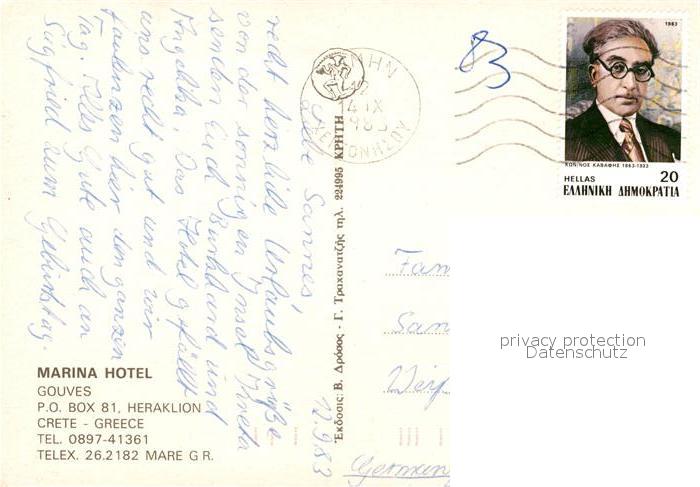 Liebe Sannes,
recht herzliche Urlaubsgrüße
von der sonnigen Insel Kreta
senden Euch Burkhard und
Angelika. Das Hotel gefällt
uns recht gut und wir
faulenzen hier den ganzen
Tag. Alles Gute auch an
Siegfried zum Geburtstag.
MARINA HOTEL
GOUVES
P.O. BOX 81, HERAKLION
CRETE - GREECE
TEL. 0897-41361
TELEX. 26.2182 MARE G R.
Ἔκδοσις: Β. Δρόσος - Γ. Τραχανατζής τηλ. 224995 ΚΡΗΤΗ
12.9.83
14 IX
1983
83
1983
ΚΩΝ/ΝΟΣ ΚΑΒΑΦΗΣ 1863-1933
HELLAS 20
ΕΛΛΗΝΙΚΗ ΔΗΜΟΚΡΑΤΙΑ
Fam
San
privacy protection
Datenschutz
Germany